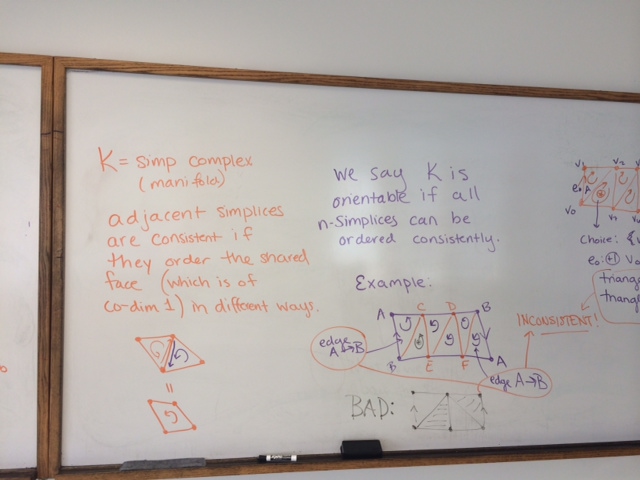 K = simp complex
(manifold)
adjacent simplices
are consistent if
they order the shared
face (which is of
co-dim 1) in different ways.
=
we say K is
orientable if all
n-simplices can be
ordered consistently.
Example:
A C D B
B E F A
edge
A→B
edge A→B
INCONSISTENT!
BAD:
V₁ V₂
e₀ A
V₀
choice:
e₀: +1 V₀
triang
triang